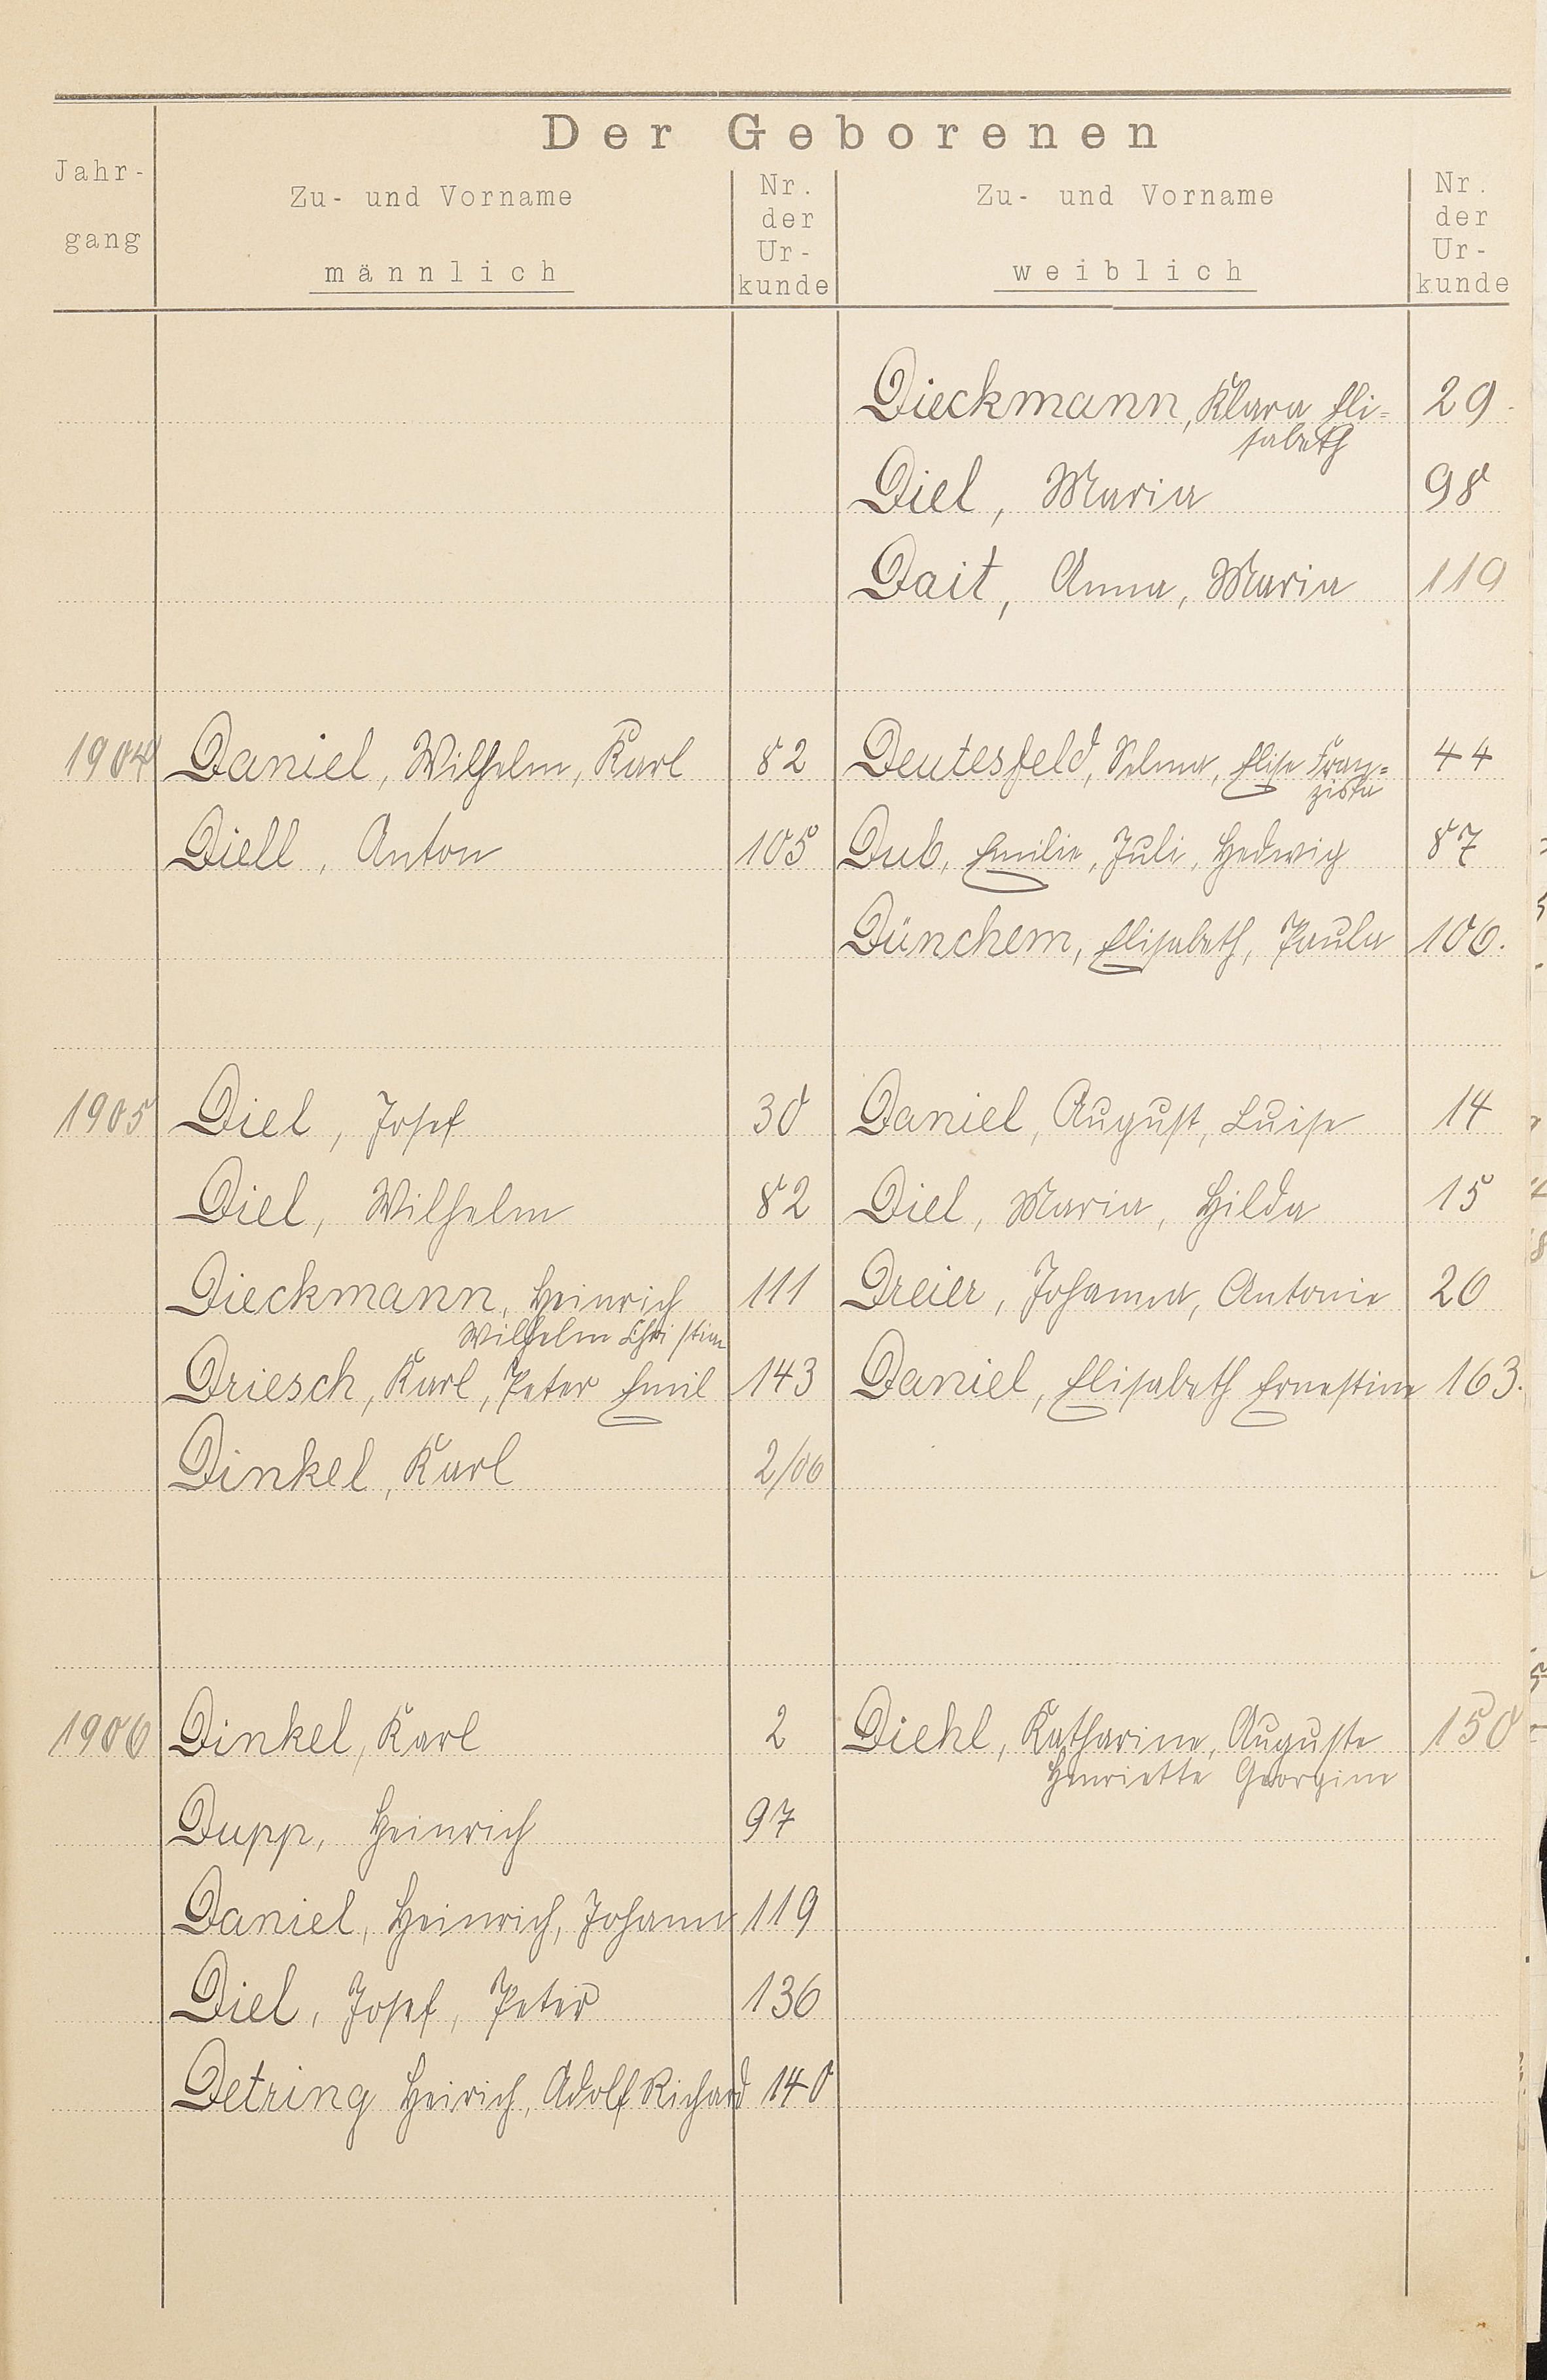 Der Geborenen
Jahr-
gang
Zu- und Vorname
männlich
Nr.
der
Ur-
kunde
Zu- und Vorname
weiblich
Nr.
der
Ur-
kunde
Dieckmann, Klara Eli- 29
sabeth
Diel, Maria 98
Dait, Anna, Maria 119
1904 Daniel, Wilhelm, Karl 82 Deutesfeld, Selma, Elise Fran-  44
ziska
Diell, Anton 105 Dub, Emilie, Juli, Hedwig 87
Dünchem, Elisabeth, Paula 106.
1905 Diel, Josef 30 Daniel, August, Luise 14
Diel, Wilhelm 82 Diel, Maria, Hilda 15
Dieckmann, Heinrich 111 Dreier, Johanna, Antonie 26
Wilhelm Christian
Driesch, Karl, Peter Emil 143 Daniel, Elisabeth Ernestine 163.
Dinkel, Karl 2/06
1906 Dinkel, Karl 2 Diehl, Katharine, Auguste 150
Henriette Georgine
Dupp, Heinrich 97
Daniel, Heinrich, Johann 119
Diel, Josef, Peter 136
Detring Heirich, Adolf Richard 140